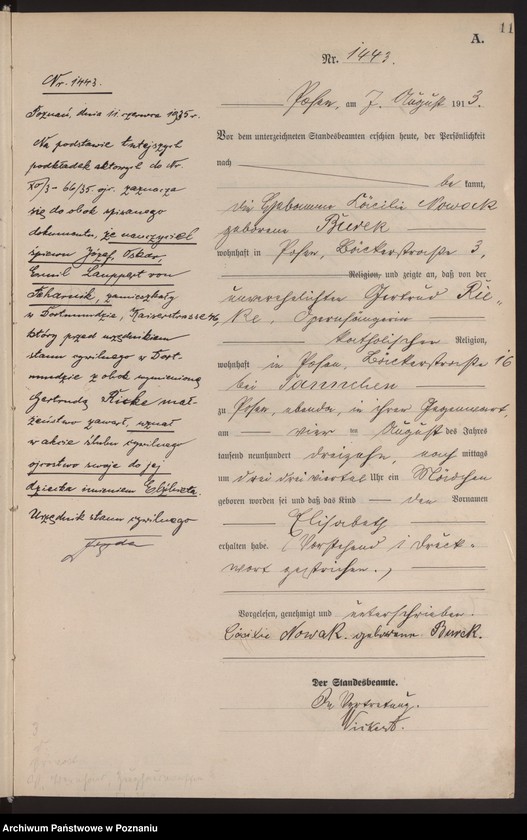 11
A.
Nr. 1443.
Posen, am 7. August 1913.
Vor dem unterzeichneten Standesbeamten erschien heute, der Persönlichkeit
nach
be kannt,
die Hebamme Cäcilie Nowack
geborene Burek
wohnhaft in Posen, Bäckerstrasse 3,
Religion, und zeigte an, daß von der
unverehelichten Gertrud Rie-
ke, Opernsängerin
katholischer Religion,
wohnhaft in Posen, Bäckerstrasse 16
bei
zu Posen, ebenda, in ihrer Gegenwart,
am vier ten August des Jahres
tausend neunhundert dreizehn, nach mittags
um drei dreiviertel Uhr ein Mädchen
geboren worden sei und daß das Kind den Vornamen
Elisabeth
erhalten habe. (Vorstehend 1 Druck-
wort gestrichen.)
Vorgelesen, genehmigt und unterschrieben.
Cäcilie Nowak. geborene Burek.
Der Standesbeamte.
In Vertretung.
Nr. 1443.
Poznań, dnia 11. czerwca 1935 r.
Na podstawie tutejszych
podkładek aktowych do Nr.
XII/3 - 66/35 ojc. zaznacza
się do obok spisanego
dokumentu, że nauczyciel
śpiewu Józef Oskar,
Emil Lamppert von
zamieszkały
w Dortmundzie, Kaiserstrasse 46,
który przed urzędnikiem
stanu cywilnego w Dort-
mundzie z obok wymienioną
Gertrudą Rieke mał-
żeństwo zawarł, uznał
w akcie ślubu cywilnego
ojcostwo swoje do jej
dziecka imieniem Elżbieta.
Urzędnik stanu cywilnego
Archiwum Państwowe w Poznaniu